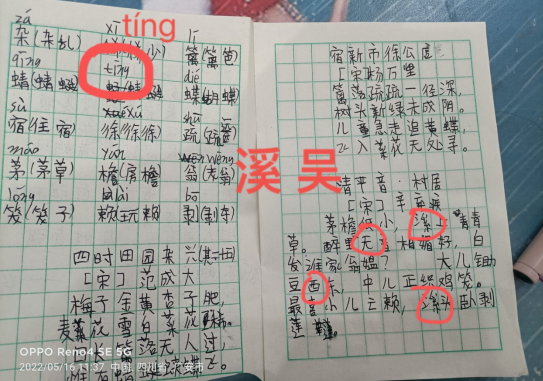 zá xī lí
杂(杂乱) 稀(稀少) 篱(篱笆)
tíng
qīng tīng dié
蜻(蜻蜓) 蜓(蜻蜓) 蝶(蝴蝶)
sù xú shū
宿(住宿) 徐(徐徐) 疏(疏
máo yán wēng
茅(茅草) 檐(房檐) 翁(
lóng lài bō
笼(笼子) 赖(玩赖) 剥(剥
四时田园杂兴(其二十五)
[宋]范成大
梅子金黄杏子肥,
麦 花雪白菜花稀。
日长篱落无人过,
惟有蜻蜓
宿新市徐公店
[宋]杨万里
篱落疏疏一径深,
树头新绿未成阴。
儿童急走追黄蝶,
飞入菜花无处寻。
溪 吴
清平音·村居
[宋]辛弃疾
茅檐低小, 上青青
草。醉里无音相媚好,白
发谁家翁媪? 大儿锄
豆西东,中儿正织鸡笼。
最喜小儿亡赖, 头卧剥
莲蓬。
OPPO Reno4 SE 5G
2022/05/16 11:37 中国·四川省·广安市